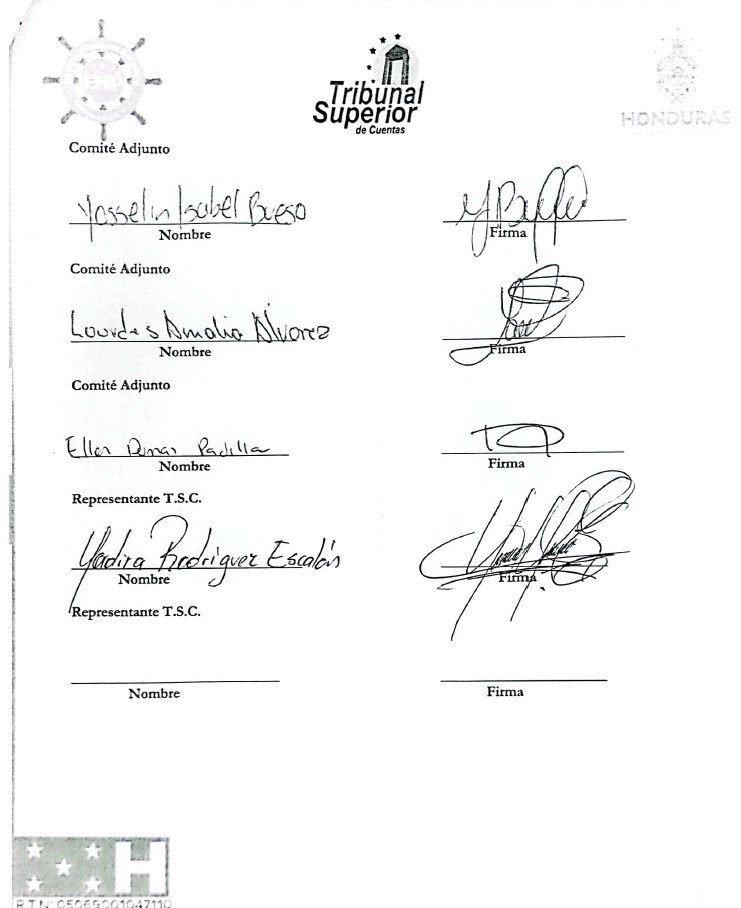 Tribunal
Superior
de Cuentas
HONDURAS
Comité Adjunto
Yosselin Isabel Bueso
Nombre
Firma
Comité Adjunto
Lourdes Amalia Alvarez
Nombre
Firma
Comité Adjunto
Padilla
Nombre
Firma
Representante T.S.C.
Yadira Rodriguez Escalón
Nombre
Firma
Representante T.S.C.
Nombre
Firma
H
R.T.N: 05069001047110